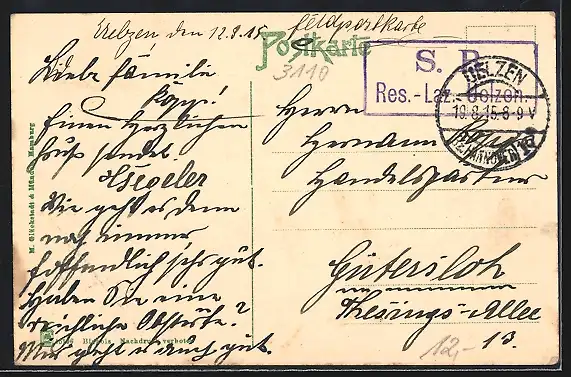 Uelzen den 12.8.15
Feldpostkarte
Postkarte
3110
S. B.
Res.-Laz. Uelzen.
UELZEN
19.8.15.8-9 V
(HANNOVER)
Liebe Familie
Kopp!
Einen herzlichen
Gruß sendet
H Segeler
Wie geht es denn
noch immer,
hoffentlich sehr gut.
Haben Sie eine
reichliche Obsternte?
Mir geht es auch gut.
Herrn
Hermann
Handelsgärtner
Gütersloh
Allee
13.
12,-
M. Glückstadt & Münden, Hamburg
Nachdruck verboten